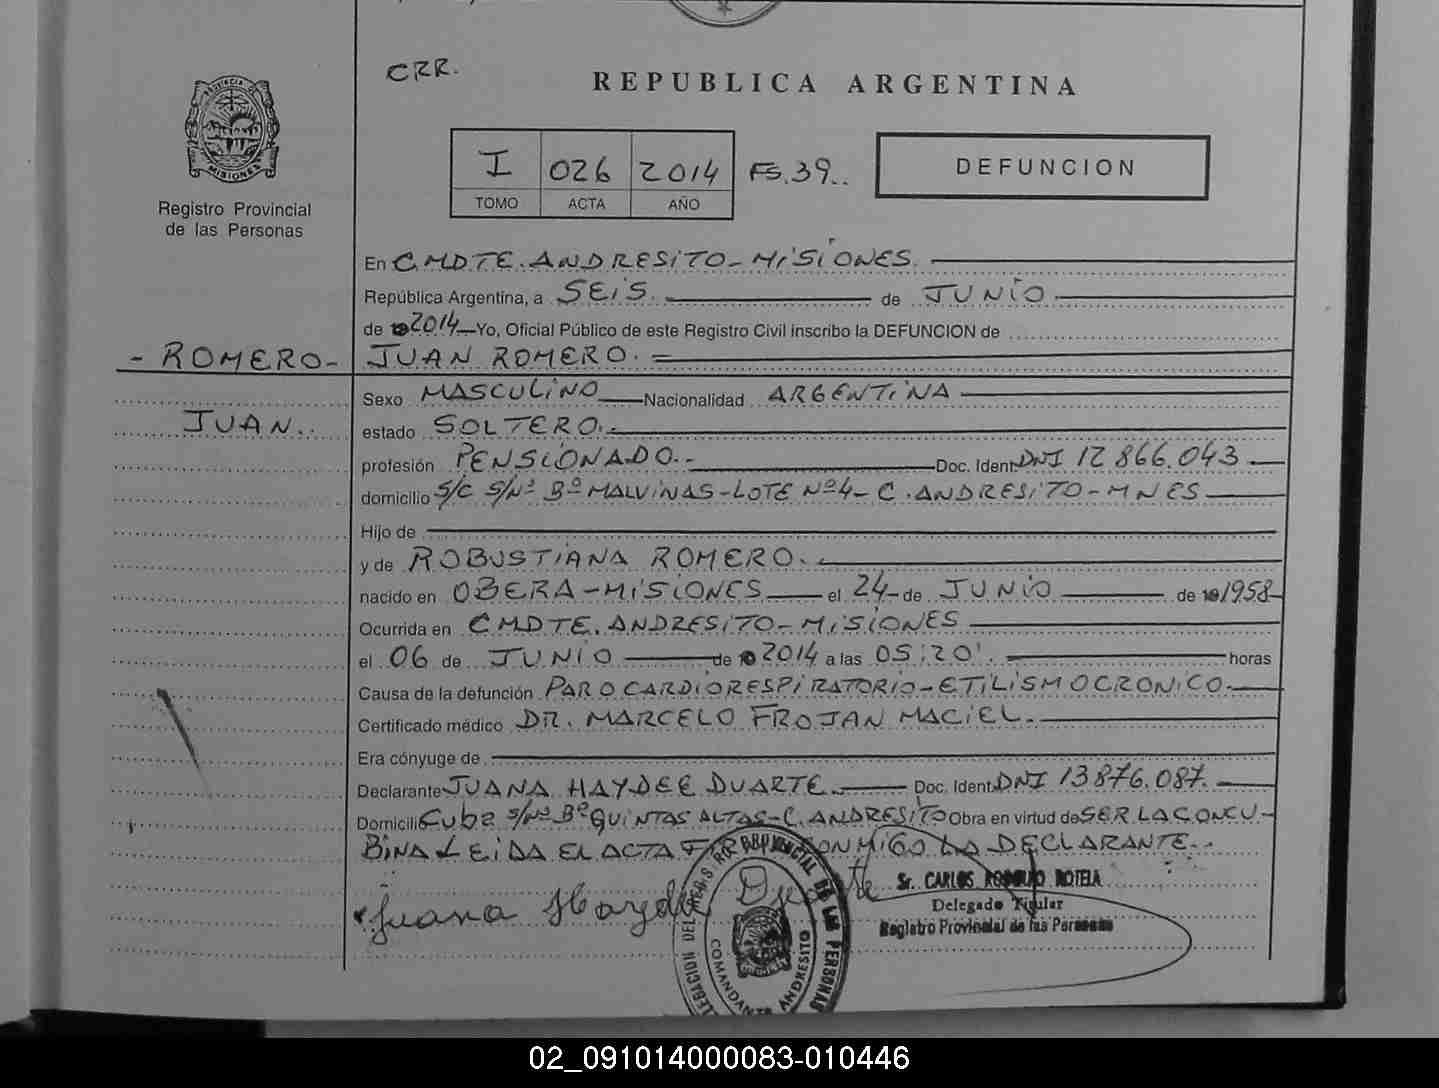 CRR.
REPUBLICA ARGENTINA
PROVINCIA DE
MISIONES
Registro Provincial
de las Personas
I 026 2014 FS.39..
TOMO ACTA AÑO
DEFUNCION
En CMDTE. ANDRESITO - MISIONES.
República Argentina, a SEIS. de JUNIO
de 2014 Yo, Oficial Público de este Registro Civil inscribo la DEFUNCION de
- ROMERO - JUAN ROMERO. =
Sexo MASCULINO Nacionalidad ARGENTINA
JUAN.. estado SOLTERO.-
profesión PENSIONADO.- Doc. Ident. DNI 12 866.043
domicilio S/C S/Nº Bº MALVINAS - LOTE Nº 4 - C. ANDRESITO - MNES
Hijo de
y de ROBUSTIANA ROMERO.
nacido en OBERA - MISIONES el 24 de JUNIO de 1958
Ocurrida en CMDTE. ANDRESITO - MISIONES
el 06 de JUNIO de 2014 a las 05:20'. horas
Causa de la defunción PARO CARDIORESPIRATORIO - ETILISMO CRONICO.
Certificado médico DR. MARCELO FROJAN MACIEL.
Era cónyuge de
Declarante JUANA HAYDEE DUARTE. Doc. Ident. DNI 13 876.087.
Domicilio Cuba S/Nº Bº QUINTAS ALTAS - C. ANDRESITO Obra en virtud de SER LA CONCU-
BINA LEIDA EL ACTA CONMIGO LA DECLARANTE..
Juana Haydee Duarte
Sr. CARLOS RODOLFO ROTELA
Delegado Titular
Registro Provincial de las Personas
DELEGACION DEL REGISTRO PROVINCIAL DE LAS PERSONAS
COMANDANTE ANDRESITO
02_091014000083-010446